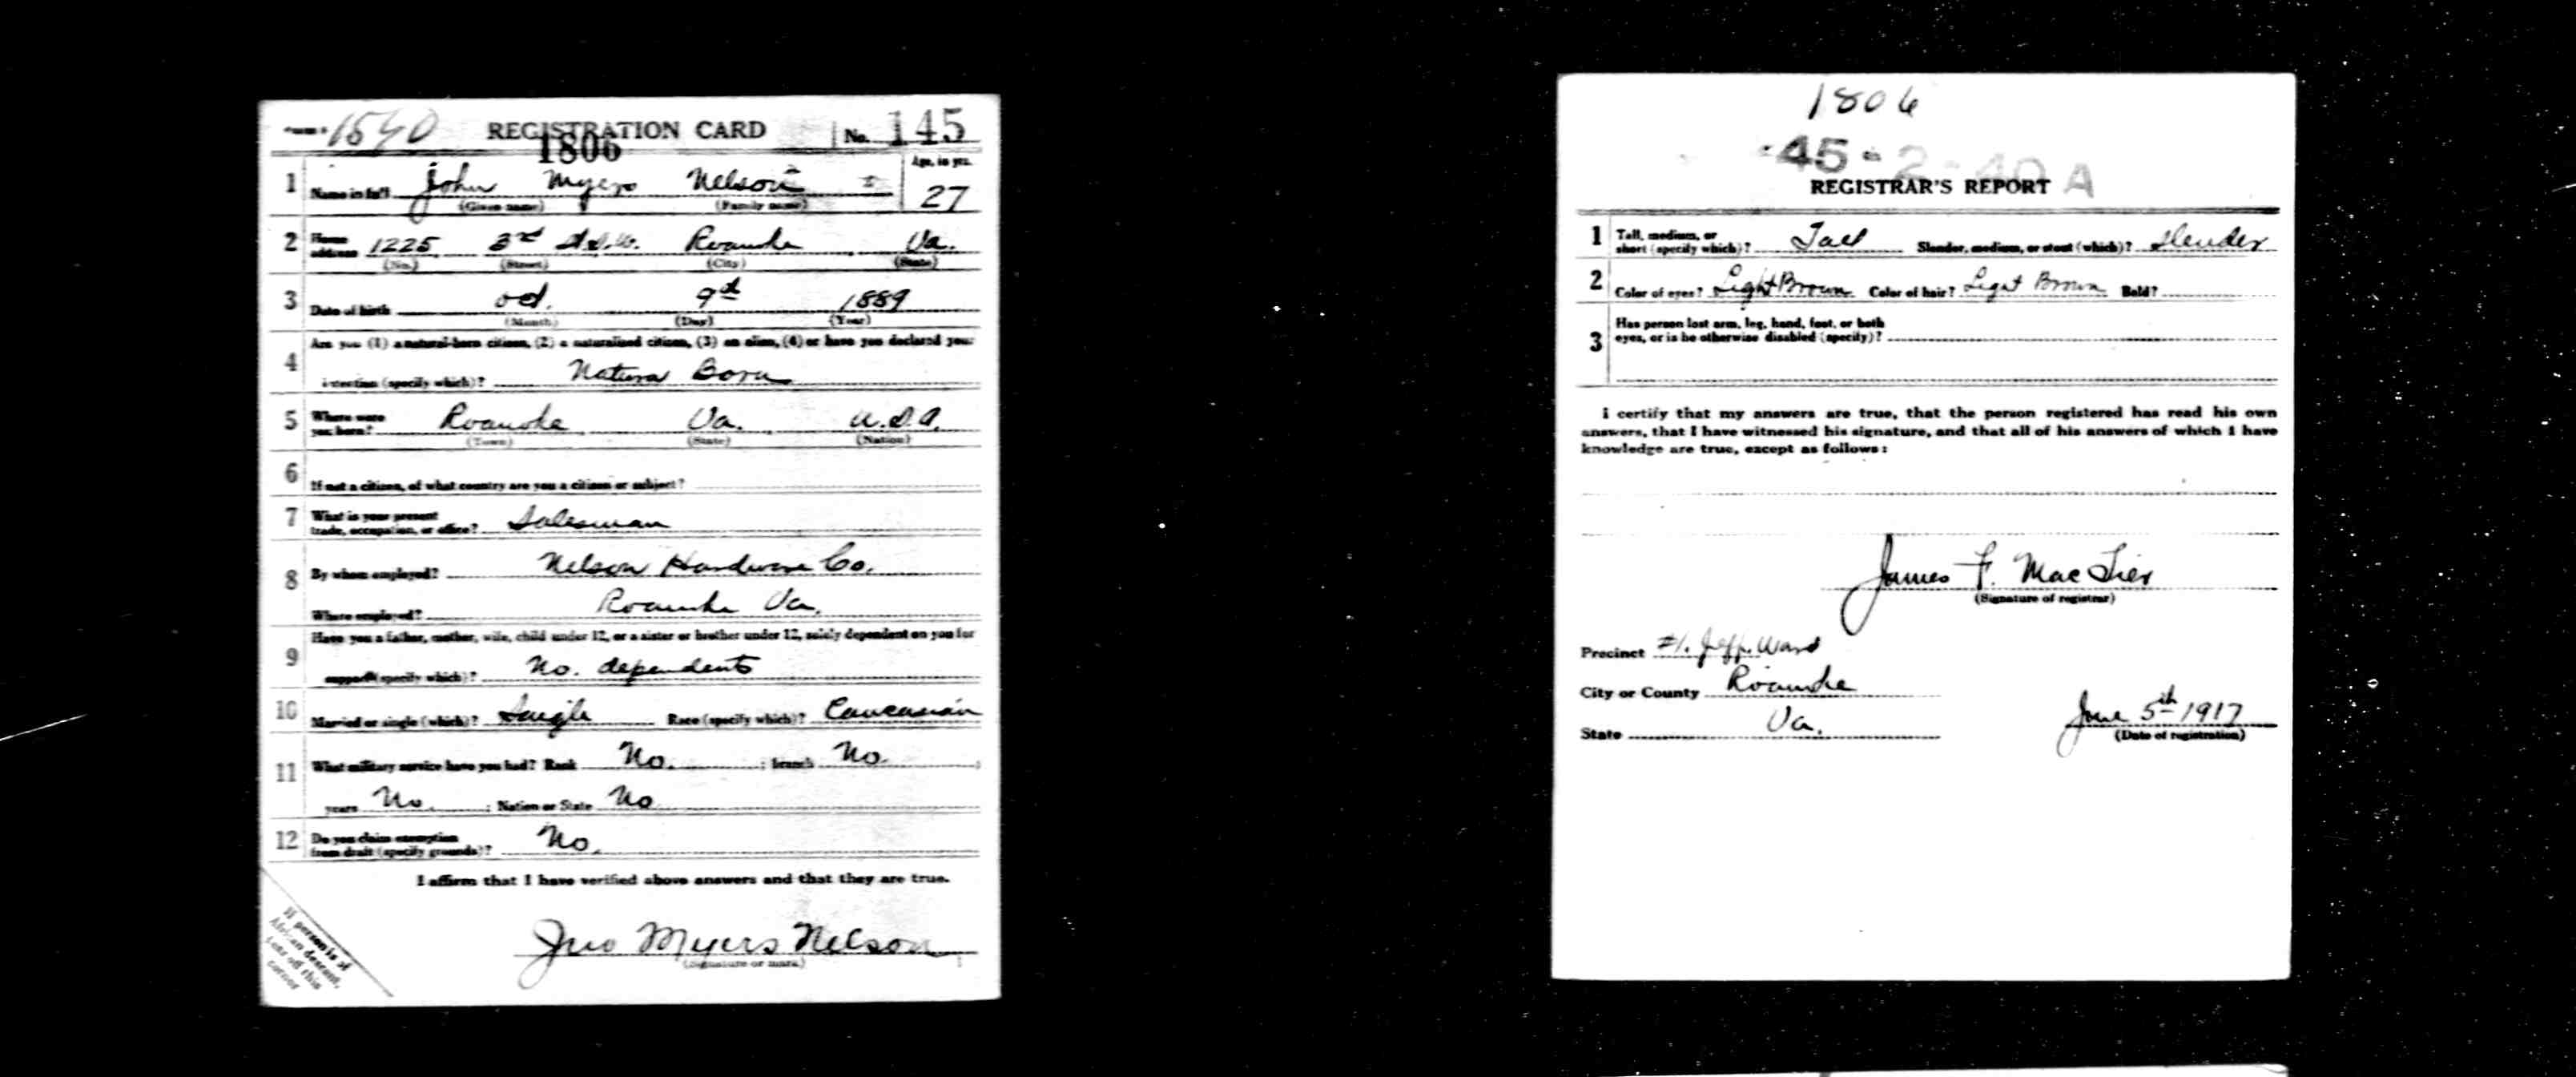 Form 1 1540 REGISTRATION CARD No. 145
1806
1 Name in full John Myers Nelson Age, in yrs. 27
(Given name) (Family name)
2 Home address 1225 3rd St. S.W. Roanoke Va.
(No.) (Street) (City) (State)
3 Date of birth Oct. 9th 1889
(Month) (Day) (Year)
4 Are you (1) a natural-born citizen, (2) a naturalized citizen, (3) an alien, (4) or have you declared your
intention (specify which)? Natural Born
5 Where were you born? Roanoke Va. U.S.A.
(Town) (State) (Nation)
6 If not a citizen, of what country are you a citizen or subject?
7 What is your present trade, occupation, or office? Salesman
8 By whom employed? Nelson Hardware Co.
Where employed? Roanoke Va.
9 Have you a father, mother, wife, child under 12, or a sister or brother under 12, solely dependent on you for
support (specify which)? No. dependents
10 Married or single (which)? Single Race (specify which)? Caucasian
11 What military service have you had? Rank No. ; branch No.
years No. ; Nation or State No
12 Do you claim exemption from draft (specify grounds)? No.
I affirm that I have verified above answers and that they are true.
Jno Myers Nelson
(Signature or mark)
If person is of
African descent,
tear off this
corner
1806
45-2-40 A
REGISTRAR'S REPORT
1 Tall, medium, or short (specify which)? Tall Slender, medium, or stout (which)? Slender
2 Color of eyes? Light Brown Color of hair? Light Brown Bald?
3 Has person lost arm, leg, hand, foot, or both
eyes, or is he otherwise disabled (specify)?
I certify that my answers are true, that the person registered has read his own
answers, that I have witnessed his signature, and that all of his answers of which I have
knowledge are true, except as follows:
James F. MacTier
(Signature of registrar)
Precinct #1. Jeff. Ward
City or County Roanoke
State Va.
June 5th 1917
(Date of registration)